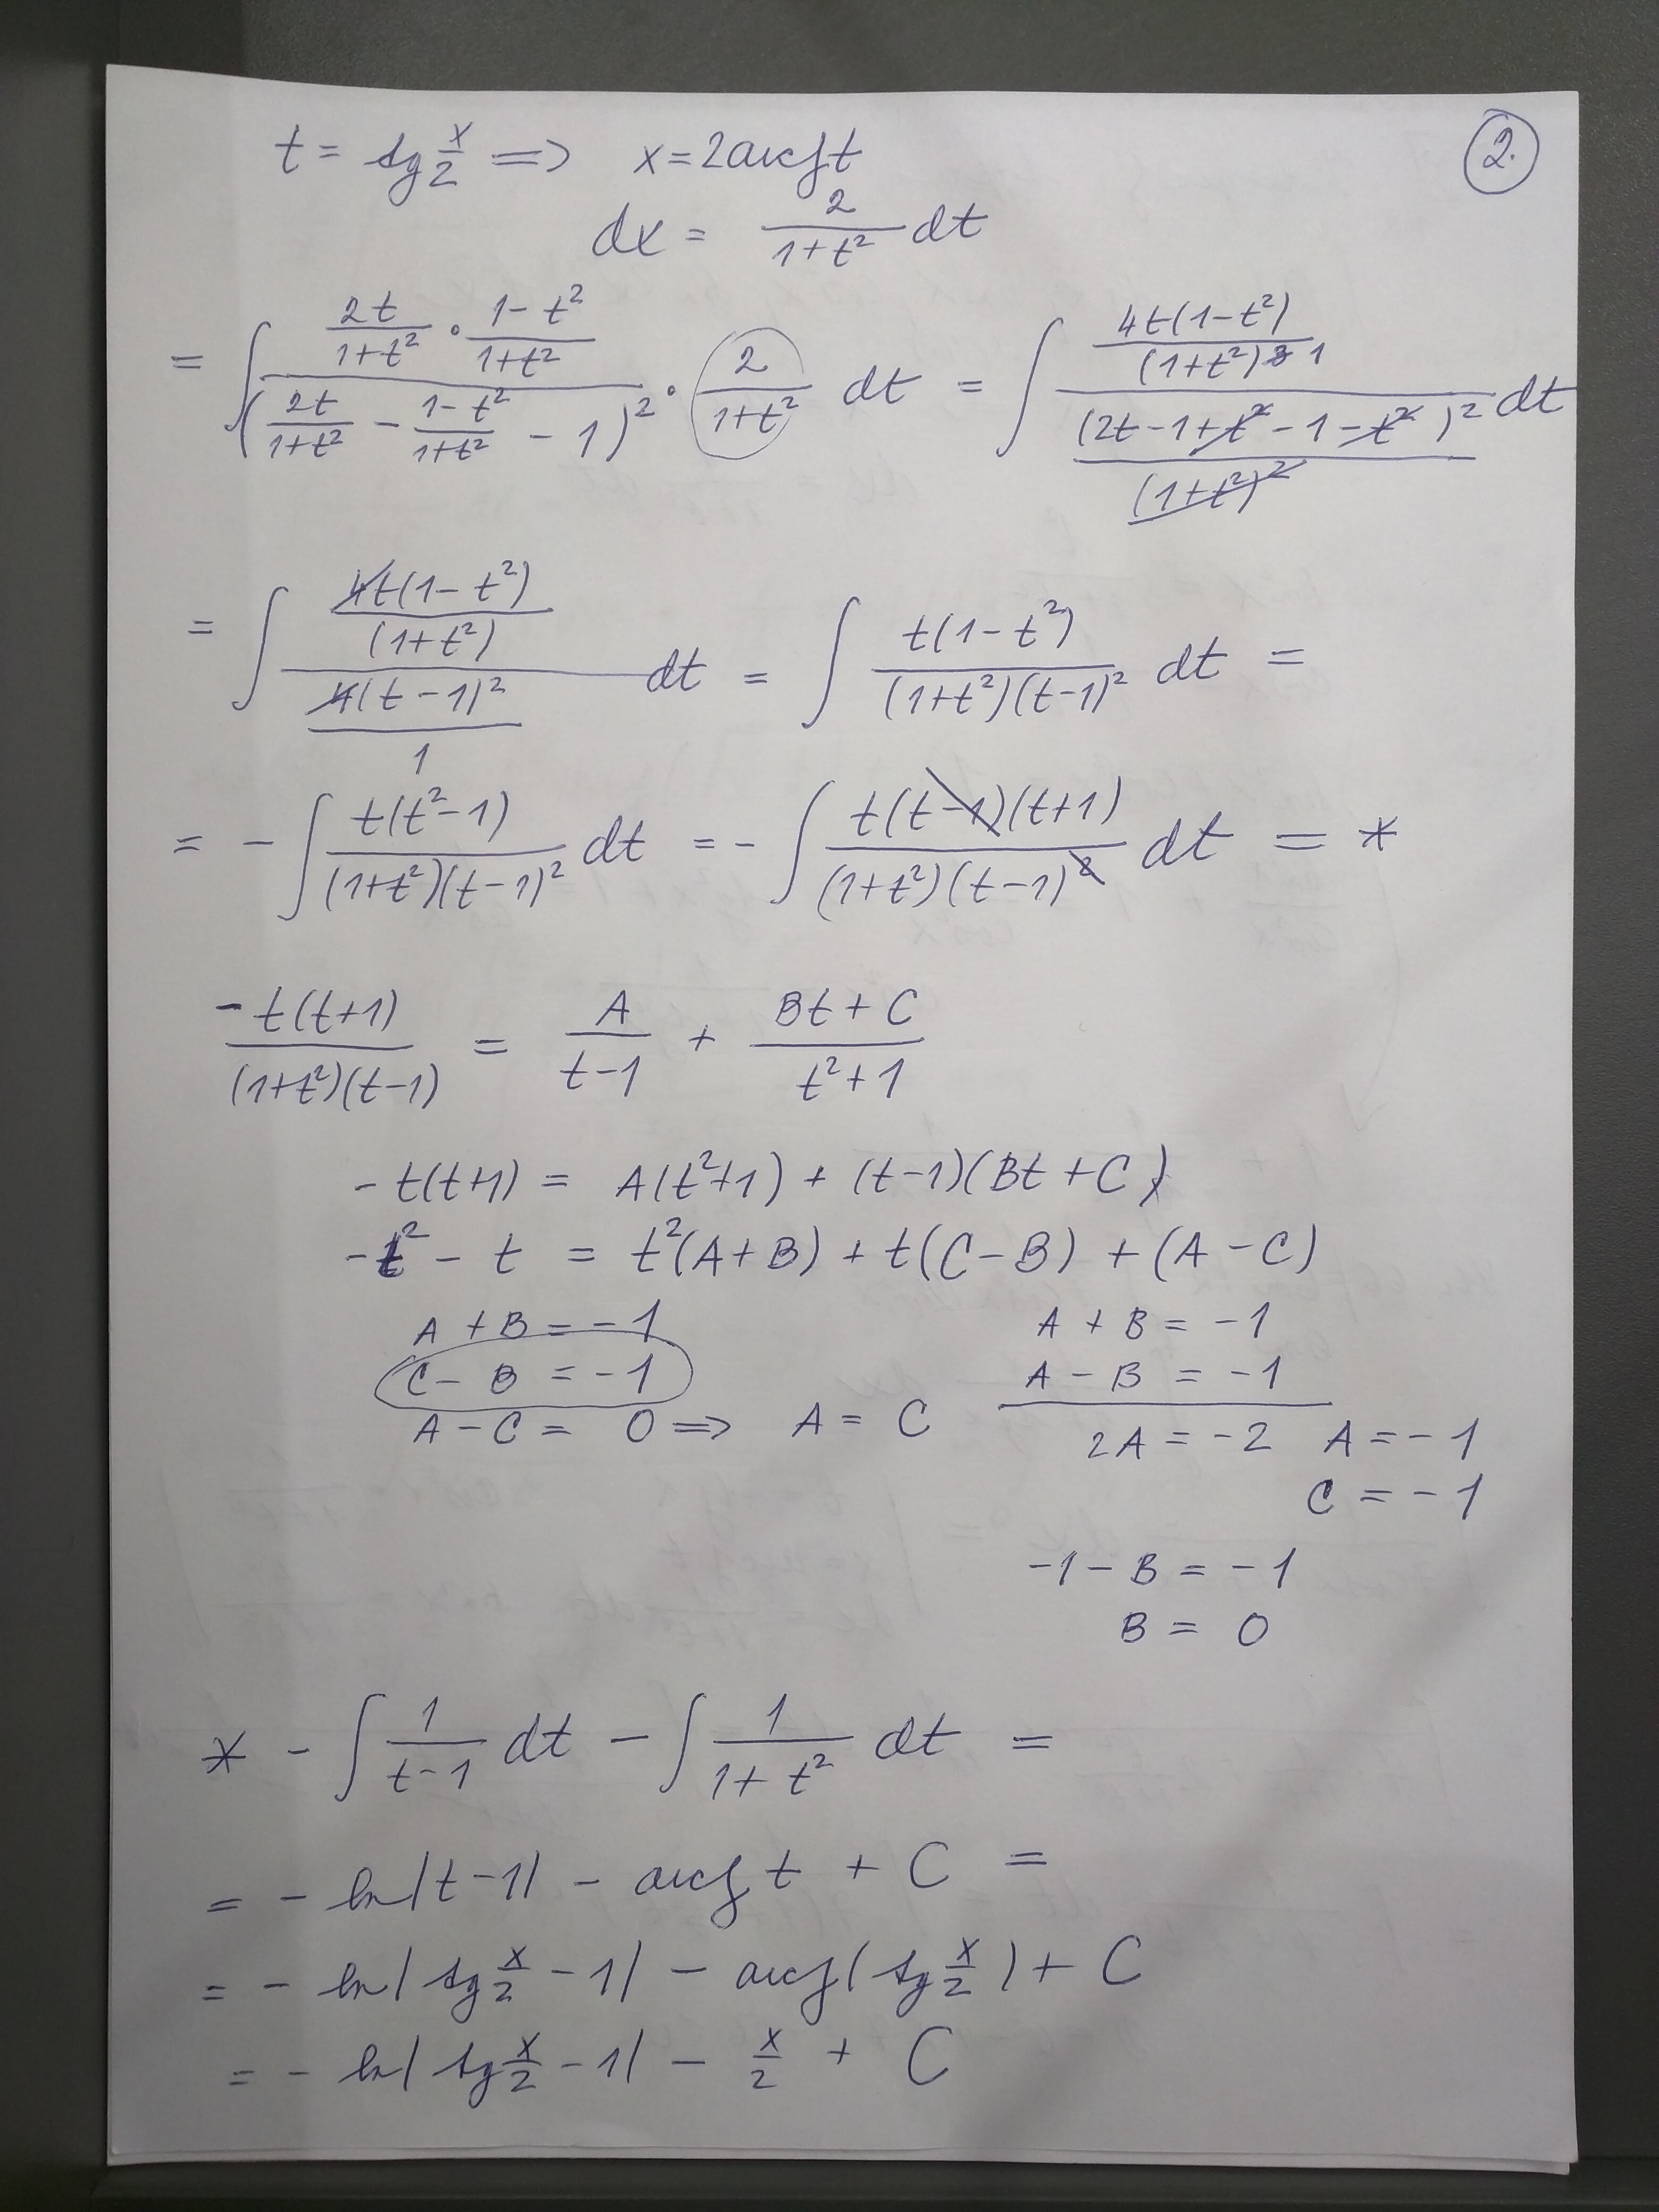 2.
t = tg x/2 => x = 2arctg t
dx = 2/(1+t²) dt
= ∫ (2t/(1+t²) · (1-t²)/(1+t²)) / (2t/(1+t²) - (1-t²)/(1+t²) - 1)² · 2/(1+t²) dt = ∫ (4t(1-t²)/(1+t²)³ 1) / ((2t-1+t²-1-t²)²/(1+t²)²) dt
= ∫ (4t(1-t²)/(1+t²)) / (4(t-1)²/1) dt = ∫ t(1-t²)/((1+t²)(t-1)²) dt =
= - ∫ t(t²-1)/((1+t²)(t-1)²) dt = - ∫ t(t-1)(t+1)/((1+t²)(t-1)²) dt = *
-t(t+1)/((1+t²)(t-1)) = A/(t-1) + (Bt+C)/(t²+1)
-t(t+1) = A(t²+1) + (t-1)(Bt+C)
-t² - t = t²(A+B) + t(C-B) + (A-C)
A + B = -1
C - B = -1
A - C = 0 => A = C
A + B = -1
A - B = -1
2A = -2 A = -1
C = -1
-1 - B = -1
B = 0
* - ∫ 1/(t-1) dt - ∫ 1/(1+t²) dt =
= - ln|t-1| - arctg t + C =
= - ln| tg x/2 - 1| - arctg( tg x/2 ) + C
= - ln| tg x/2 - 1| - x/2 + C